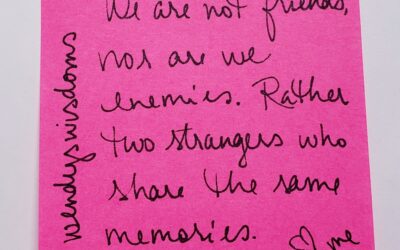 We are not friends,
nor are we
enemies. Rather
two strangers who
share the same
memories.
me
wendyswisdoms